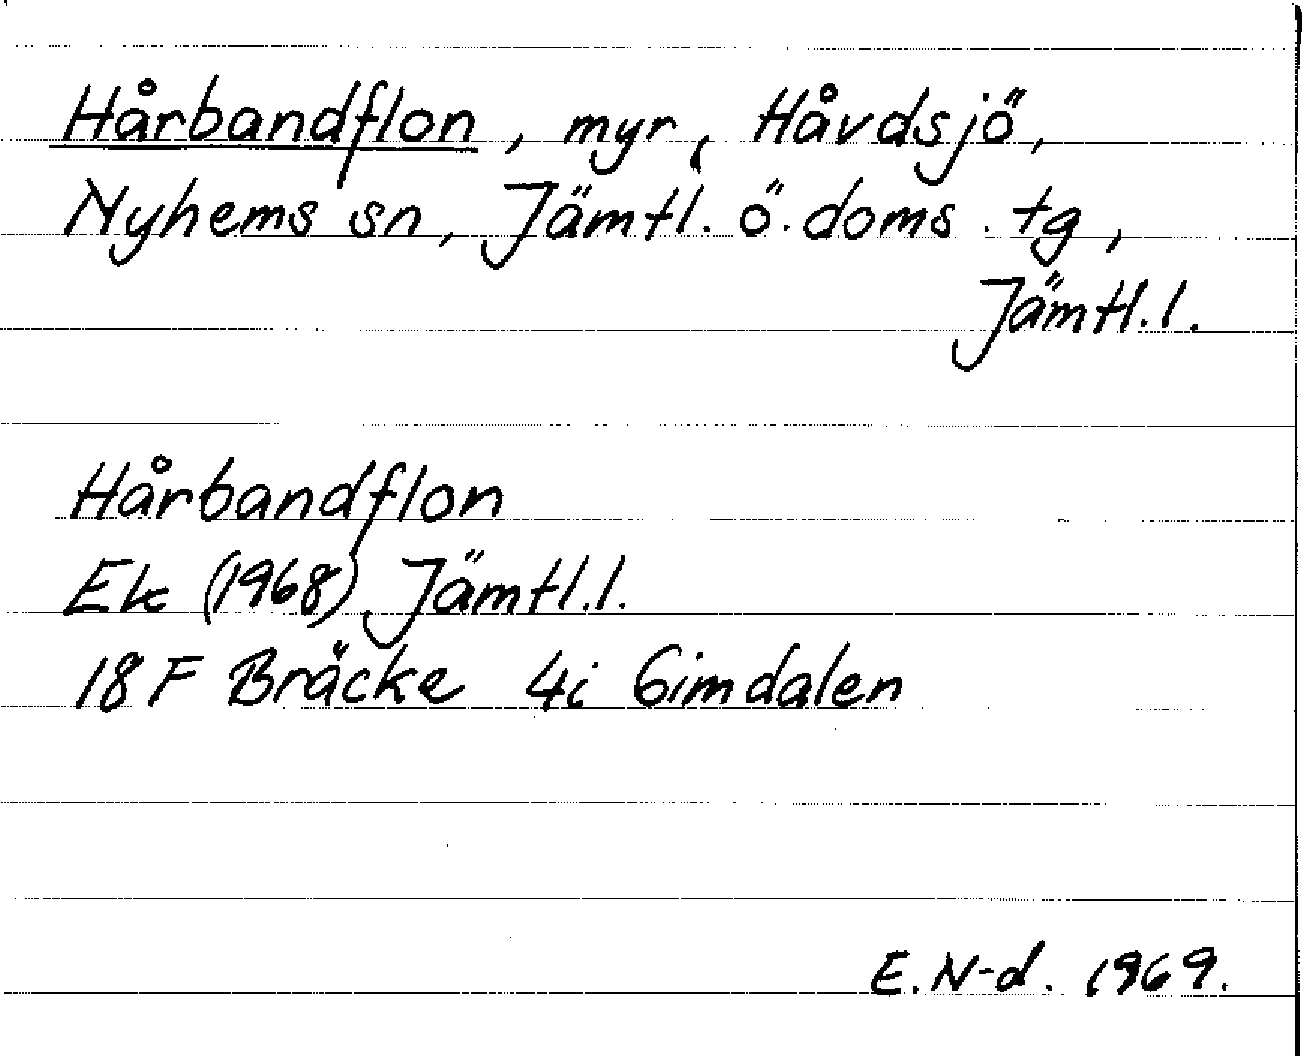 Hårbandflon, myr, Håvdsjö,
Nyhems sn, Jämtl. ö. doms. tg,
Jämtl. l.
Hårbandflon
Ek (1968) Jämtl. l.
18 F Bräcke 4i Gimdalen
E. N-d. 1969.